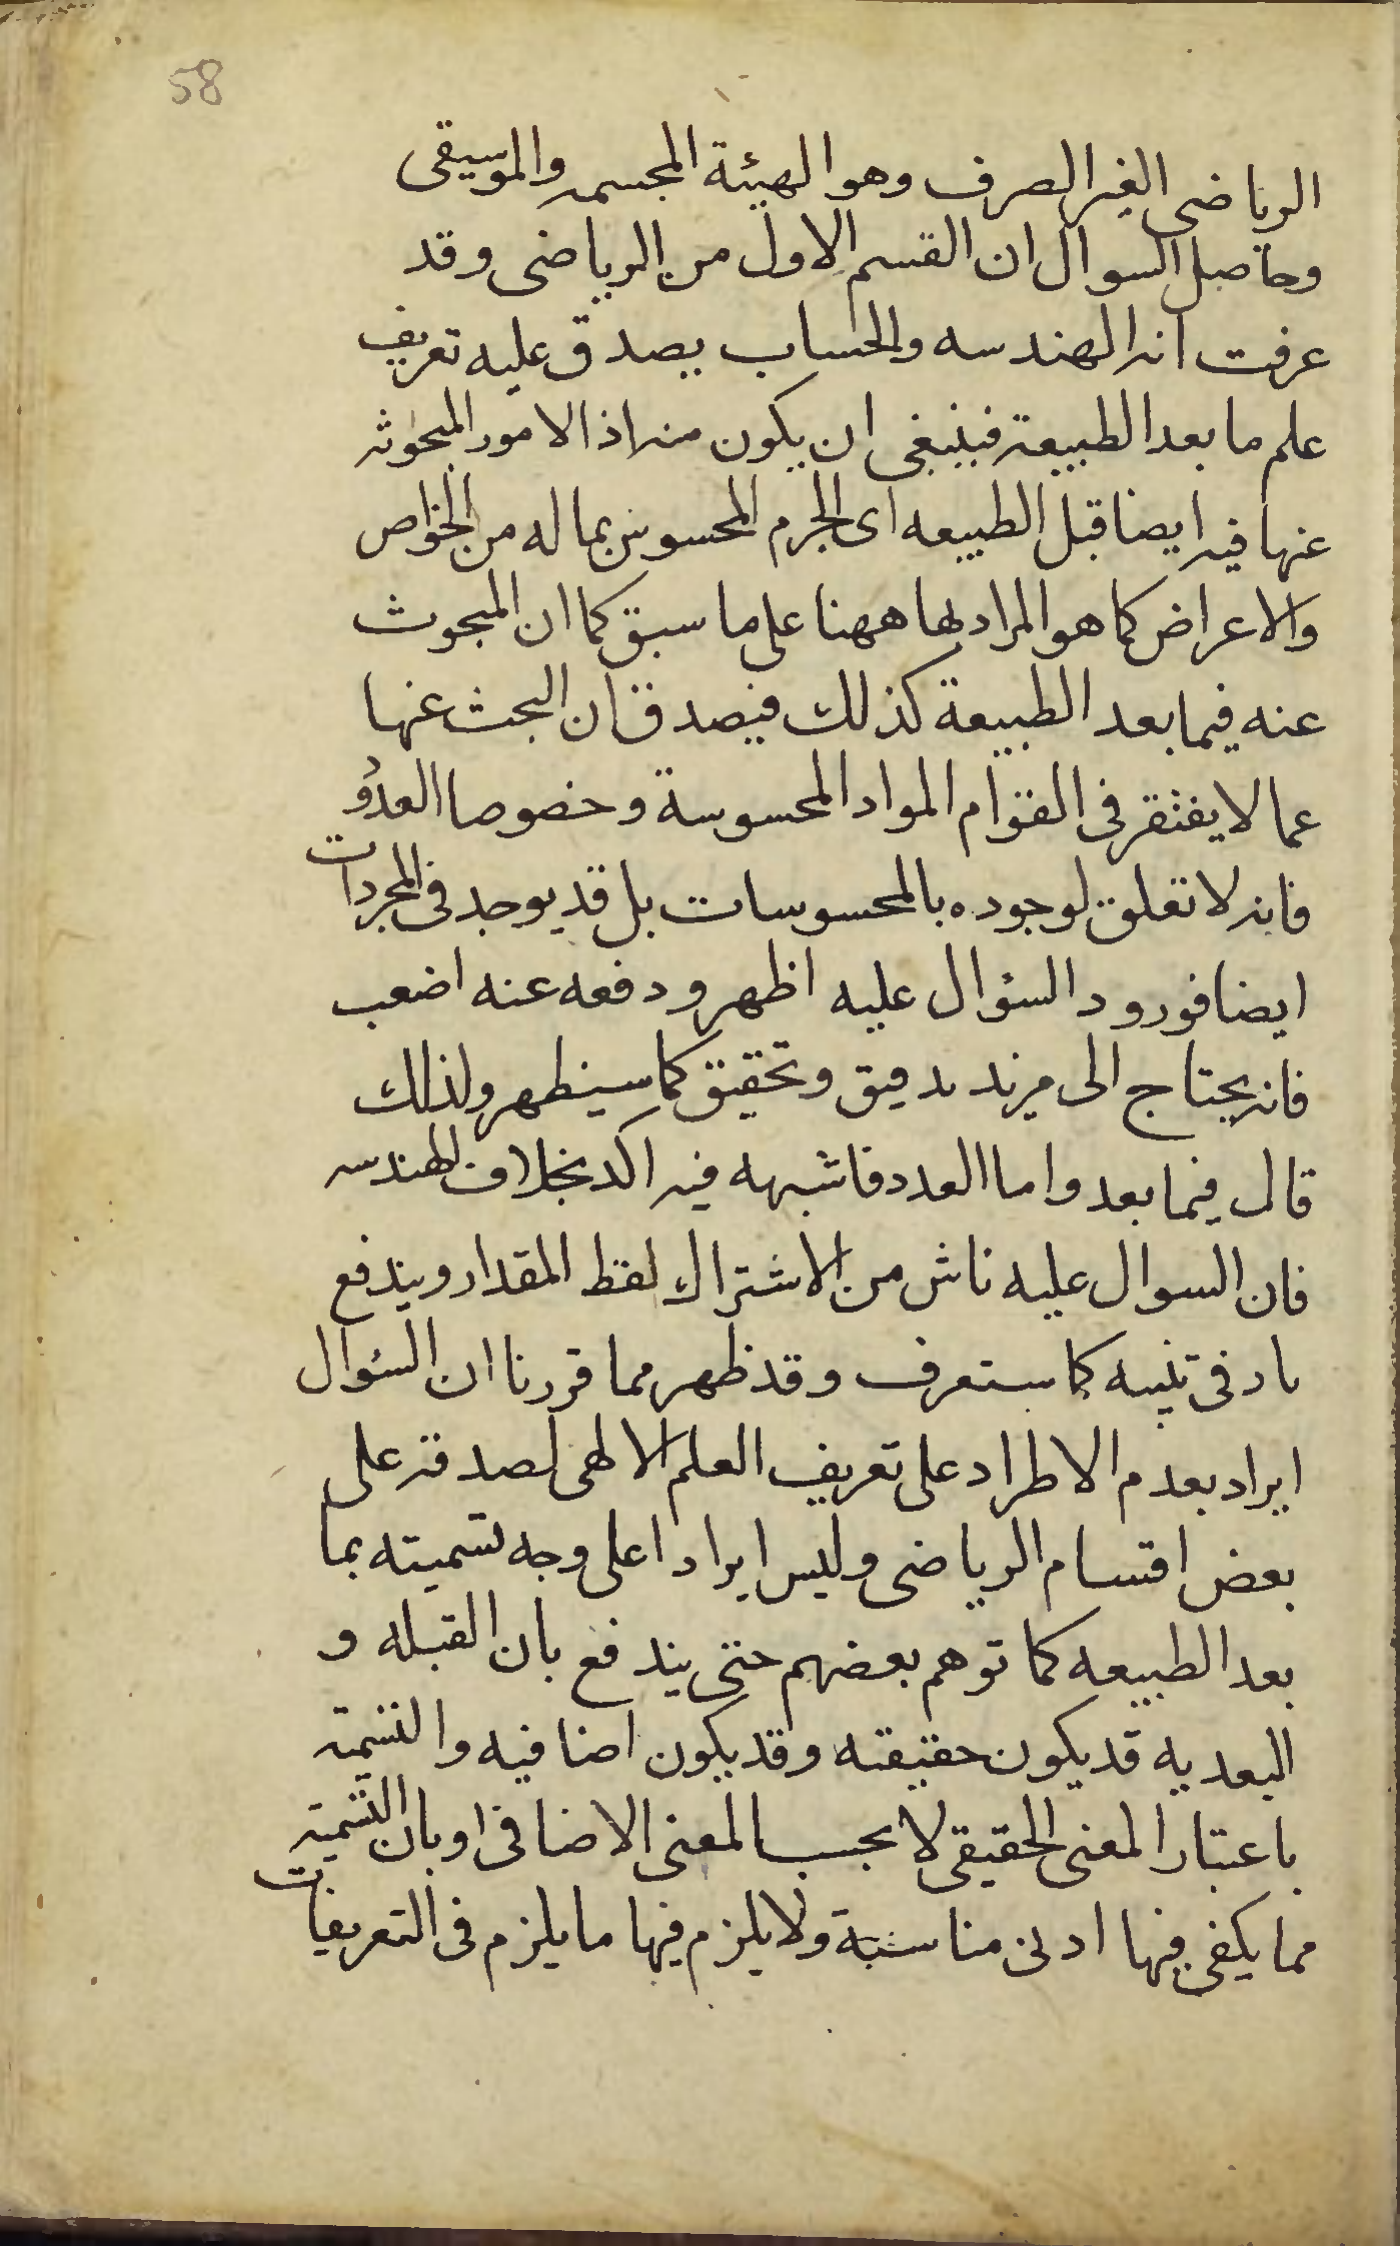 58
الرياضى الغير الصرف وهو الهيئة المجسمه والموسيقى
وحاصل السوال ان القسم الاول من الرياضى وقد
عرفت انه الهندسه والحساب يصدق عليه تعريف
علم ما بعد الطبيعة فينبغى ان يكون منه اذ الامور المبحوثه
عنها فيه ايضا قبل الطبيعه اى الجرم المحسوس بما له من الخواص
والاعراض كما هو المراد بها ههنا على ما سبق كما ان المبحوث
عنه فيما بعد الطبيعة كذلك فيصدق ان البحث عنها
عما لا يفتقر فى القوام المواد المحسوسة وخصوصا العدد
فانه لا تعلق لوجوده بالمحسوسات بل قد يوجد فى المجردات
ايضا فورود السؤال عليه اظهر ودفعه عنه اضعب
فانه يحتاج الى مزيد تدقيق وتحقيق كما سيظهر ولذلك
قال فيما بعد واما العدد فاشبهه فيه اكد بخلاف الهندسه
فان السوال عليه ناش من الاشتراك لفظ المقدار ويندفع
بادفى تنبيه كما ستعرف وقد ظهر مما قررنا ان السئوال
ايراد بعدم الاطراد على تعريف العلم الالهى لصدقه على
بعض اقسام الرياضى وليس ايرادا على وجه تسميته بما
بعد الطبيعه كما توهم بعضهم حتى يندفع بان القبله و
البعديه قد يكون حقيقته وقد يكون اضافيه والتسمية
باعتبار المعنى الحقيقى لا بحسب المعنى الاضافى او بان التسمية
مما يكفى فيها ادنى مناسبة ولا يلزم فيها ما يلزم فى التعريفات